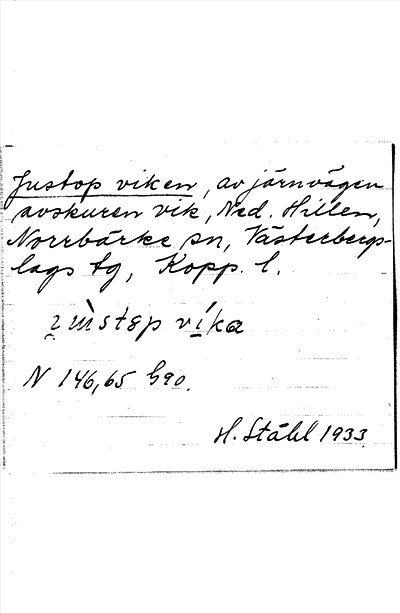 Justop viken, av järnvägen
avskuren vik, Ned. Hillen,
Norrbärke sn, Västerbergs-
lags tg, Kopp. l.
víka
N 146,65 G90.
H. Ståhl 1933